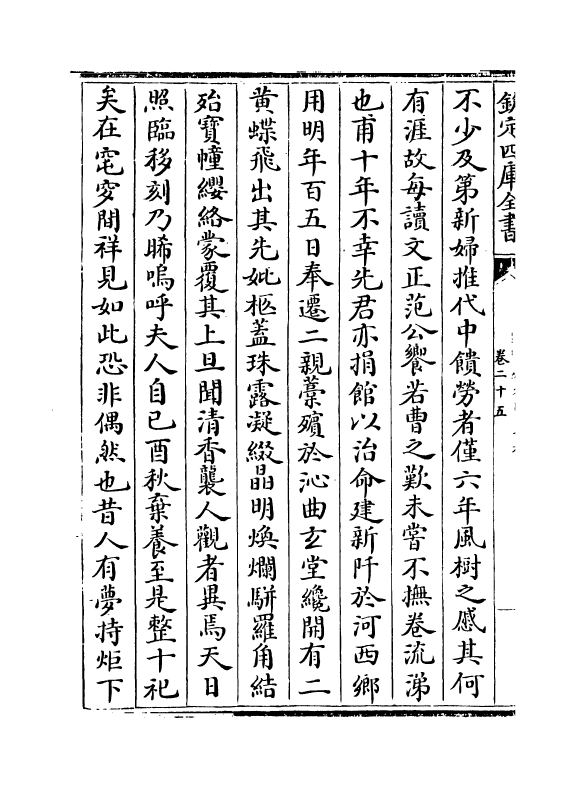 欽定四庫全書
卷二十五
不少及第新婦推代中饋勞者僅六年風樹之慼其何
有涯故每讀文正范公饗若曹之歎未嘗不撫卷流涕
也甫十年不幸先君亦捐館以治命建新阡於河西鄉
用明年百五日奉遷二親藁殯於沁曲玄堂纔開有二
黃蝶飛出其先妣柩蓋珠露凝綴晶明煥爛駢羅角結
殆寶幢纓絡蒙覆其上旦聞清香襲人觀者異焉天日
照臨移刻乃晞嗚呼夫人自己酉秋棄養至是整十祀
矣在窀穸間祥見如此恐非偶然也昔人有夢持炬下